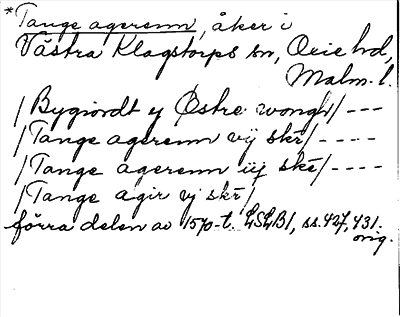 *Tange agerenn, åker i
Västra Klagstorps sn, Oxie hd,
Malm. l.
/Bygiordt y Østre wongh/---
/Tange agerenn vÿ skr/----
/Tange agerenn iij ske/----
/Tange agir vj skr/
förra delen av 1570-t. LSLB1, ss. 427, 431.
orig.